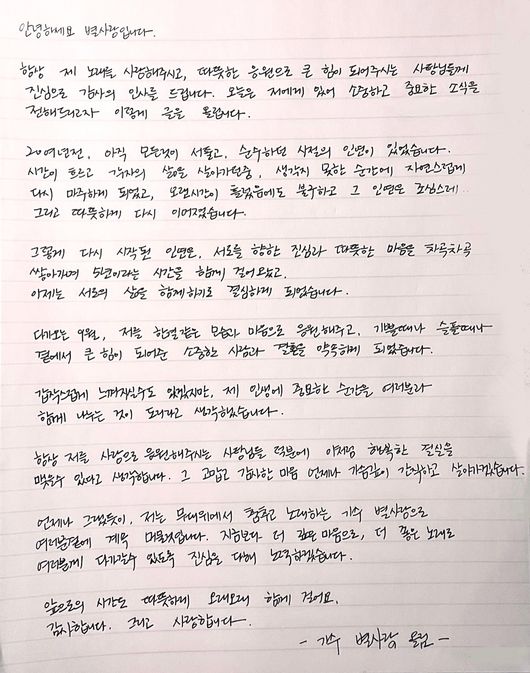 안녕하세요 별사랑입니다.
항상 제 노래를 사랑해주시고, 따뜻한 응원으로 큰 힘이 되어주시는 사랑님들께
진심으로 감사의 인사를 드립니다. 오늘은 저에게 있어 소중하고 중요한 소식을
전해드리고자 이렇게 글을 올립니다.
20여년전, 아직 모든것이 서툴고, 순수하던 시절의 인연이 있었습니다.
시간이 흐르고 각자의 삶을 살아가던중, 생각지 못한 순간에 자연스럽게
다시 마주하게 되었고, 오랜시간이 흘렀음에도 불구하고 그 인연은 조심스레..
그리고 따뜻하게 다시 이어졌습니다.
그렇게 다시 시작된 인연은, 서로를 향한 진심과 따뜻한 마음을 차곡차곡
쌓아가며 5년이라는 시간을 함께 걸어왔고,
이제는 서로의 삶을 함께하기로 결심하게 되었습니다.
다가오는 9월, 저를 한결같은 모습과 마음으로 응원해주고, 기쁠때나 슬플때나
곁에서 큰 힘이 되어준 소중한 사람과 결혼을 약속하게 되었습니다.
갑작스럽게 느껴지실수도 있겠지만, 제 인생에 중요한 순간을 여러분과
함께 나누는 것이 도리라고 생각하였습니다.
항상 저를 사랑으로 응원해주시는 사랑님들 덕분에 이처럼 행복한 결실을
맺을수 있다고 생각합니다. 그 고맙고 감사한 마음 언제나 가슴깊이 간직하고 살아가겠습니다.
언제나 그랬듯이, 저는 무대위에서 춤추고 노래하는 가수 별사랑으로
여러분곁에 계속 머물것입니다. 지금보다 더 깊은 마음으로, 더 좋은 노래로
여러분께 다가갈수 있도록 진심을 다해 노력하겠습니다.
앞으로의 시간도 따뜻하게 오래오래 함께 걸어요.
감사합니다. 그리고 사랑합니다.
- 가수 별사랑 올림 -